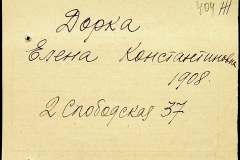 404
Дорка
Елена Константиновна
1908.
2 Слободская 37